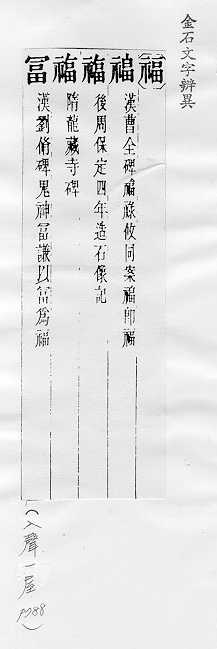 金石文字辨異
〔福〕
福 漢曹全碑福祿攸同案福即福
福 後周保定四年造石像記
福 隋龍藏寺碑
冨 漢劉脩碑鬼神冨謙以冨為福
(入聲一屋 1988)